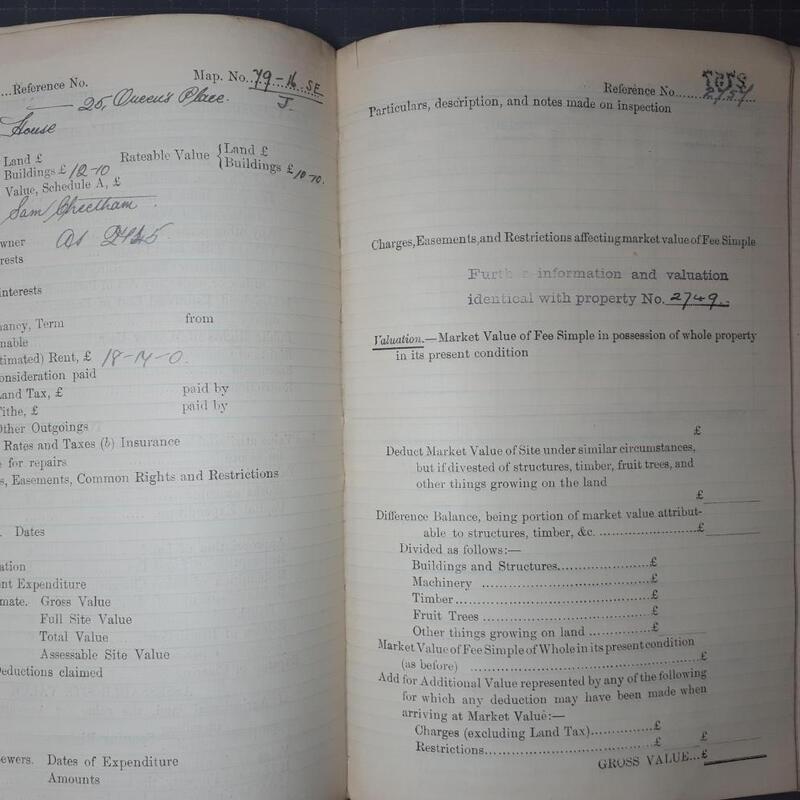 ...Reference No. Map. No. 79-16 SE
25, Queen's Place. J.
House
Land £
Buildings £ 12-10 Rateable Value {Land £
{Buildings £ 10-10.
Value, Schedule A, £
Sam Cheetham.
wner As
rests
interests
nancy, Term from
nable
timated) Rent, £ 18-4-0.
onsideration paid
Land Tax, £ paid by
Tithe, £ paid by
Other Outgoings
Rates and Taxes (b) Insurance
e for repairs
s, Easements, Common Rights and Restrictions
. Dates
ation
nt Expenditure
mate. Gross Value
Full Site Value
Total Value
Assessable Site Value
Deductions claimed
ewers. Dates of Expenditure
Amounts
Reference No.......
Particulars, description, and notes made on inspection
Charges, Easements, and Restrictions affecting market value of Fee Simple
Further information and valuation
identical with property No. 2749.
Valuation.—Market Value of Fee Simple in possession of whole property
in its present condition
£
Deduct Market Value of Site under similar circumstances,
but if divested of structures, timber, fruit trees, and
other things growing on the land
£
Difference Balance, being portion of market value attribut-
able to structures, timber, &c. ........................£
Divided as follows:—
Buildings and Structures....................£
Machinery ....................................£
Timber..........................................£
Fruit Trees ....................................£
Other things growing on land ............£
Market Value of Fee Simple of Whole in its present condition
(as before) ..................................................£
Add for Additional Value represented by any of the following
for which any deduction may have been made when
arriving at Market Value:—
Charges (excluding Land Tax)..............£
Restrictions....................................£ £
GROSS VALUE...£